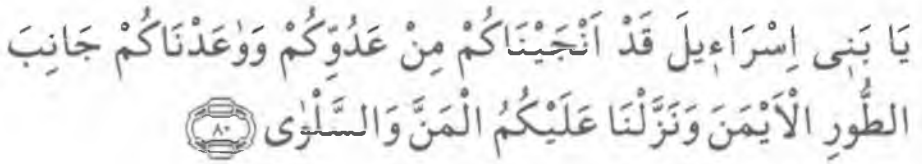 يَا بَنٖى اِسْرَاءٖيلَ قَدْ اَنْجَيْنَاكُمْ مِنْ عَدُوِّكُمْ وَوٰعَدْنَاكُمْ جَانِبَ
الطُّورِ الْاَيْمَنَ وَنَزَّلْنَا عَلَيْكُمُ الْمَنَّ وَالسَّلْوٰى ﴿٨٠﴾